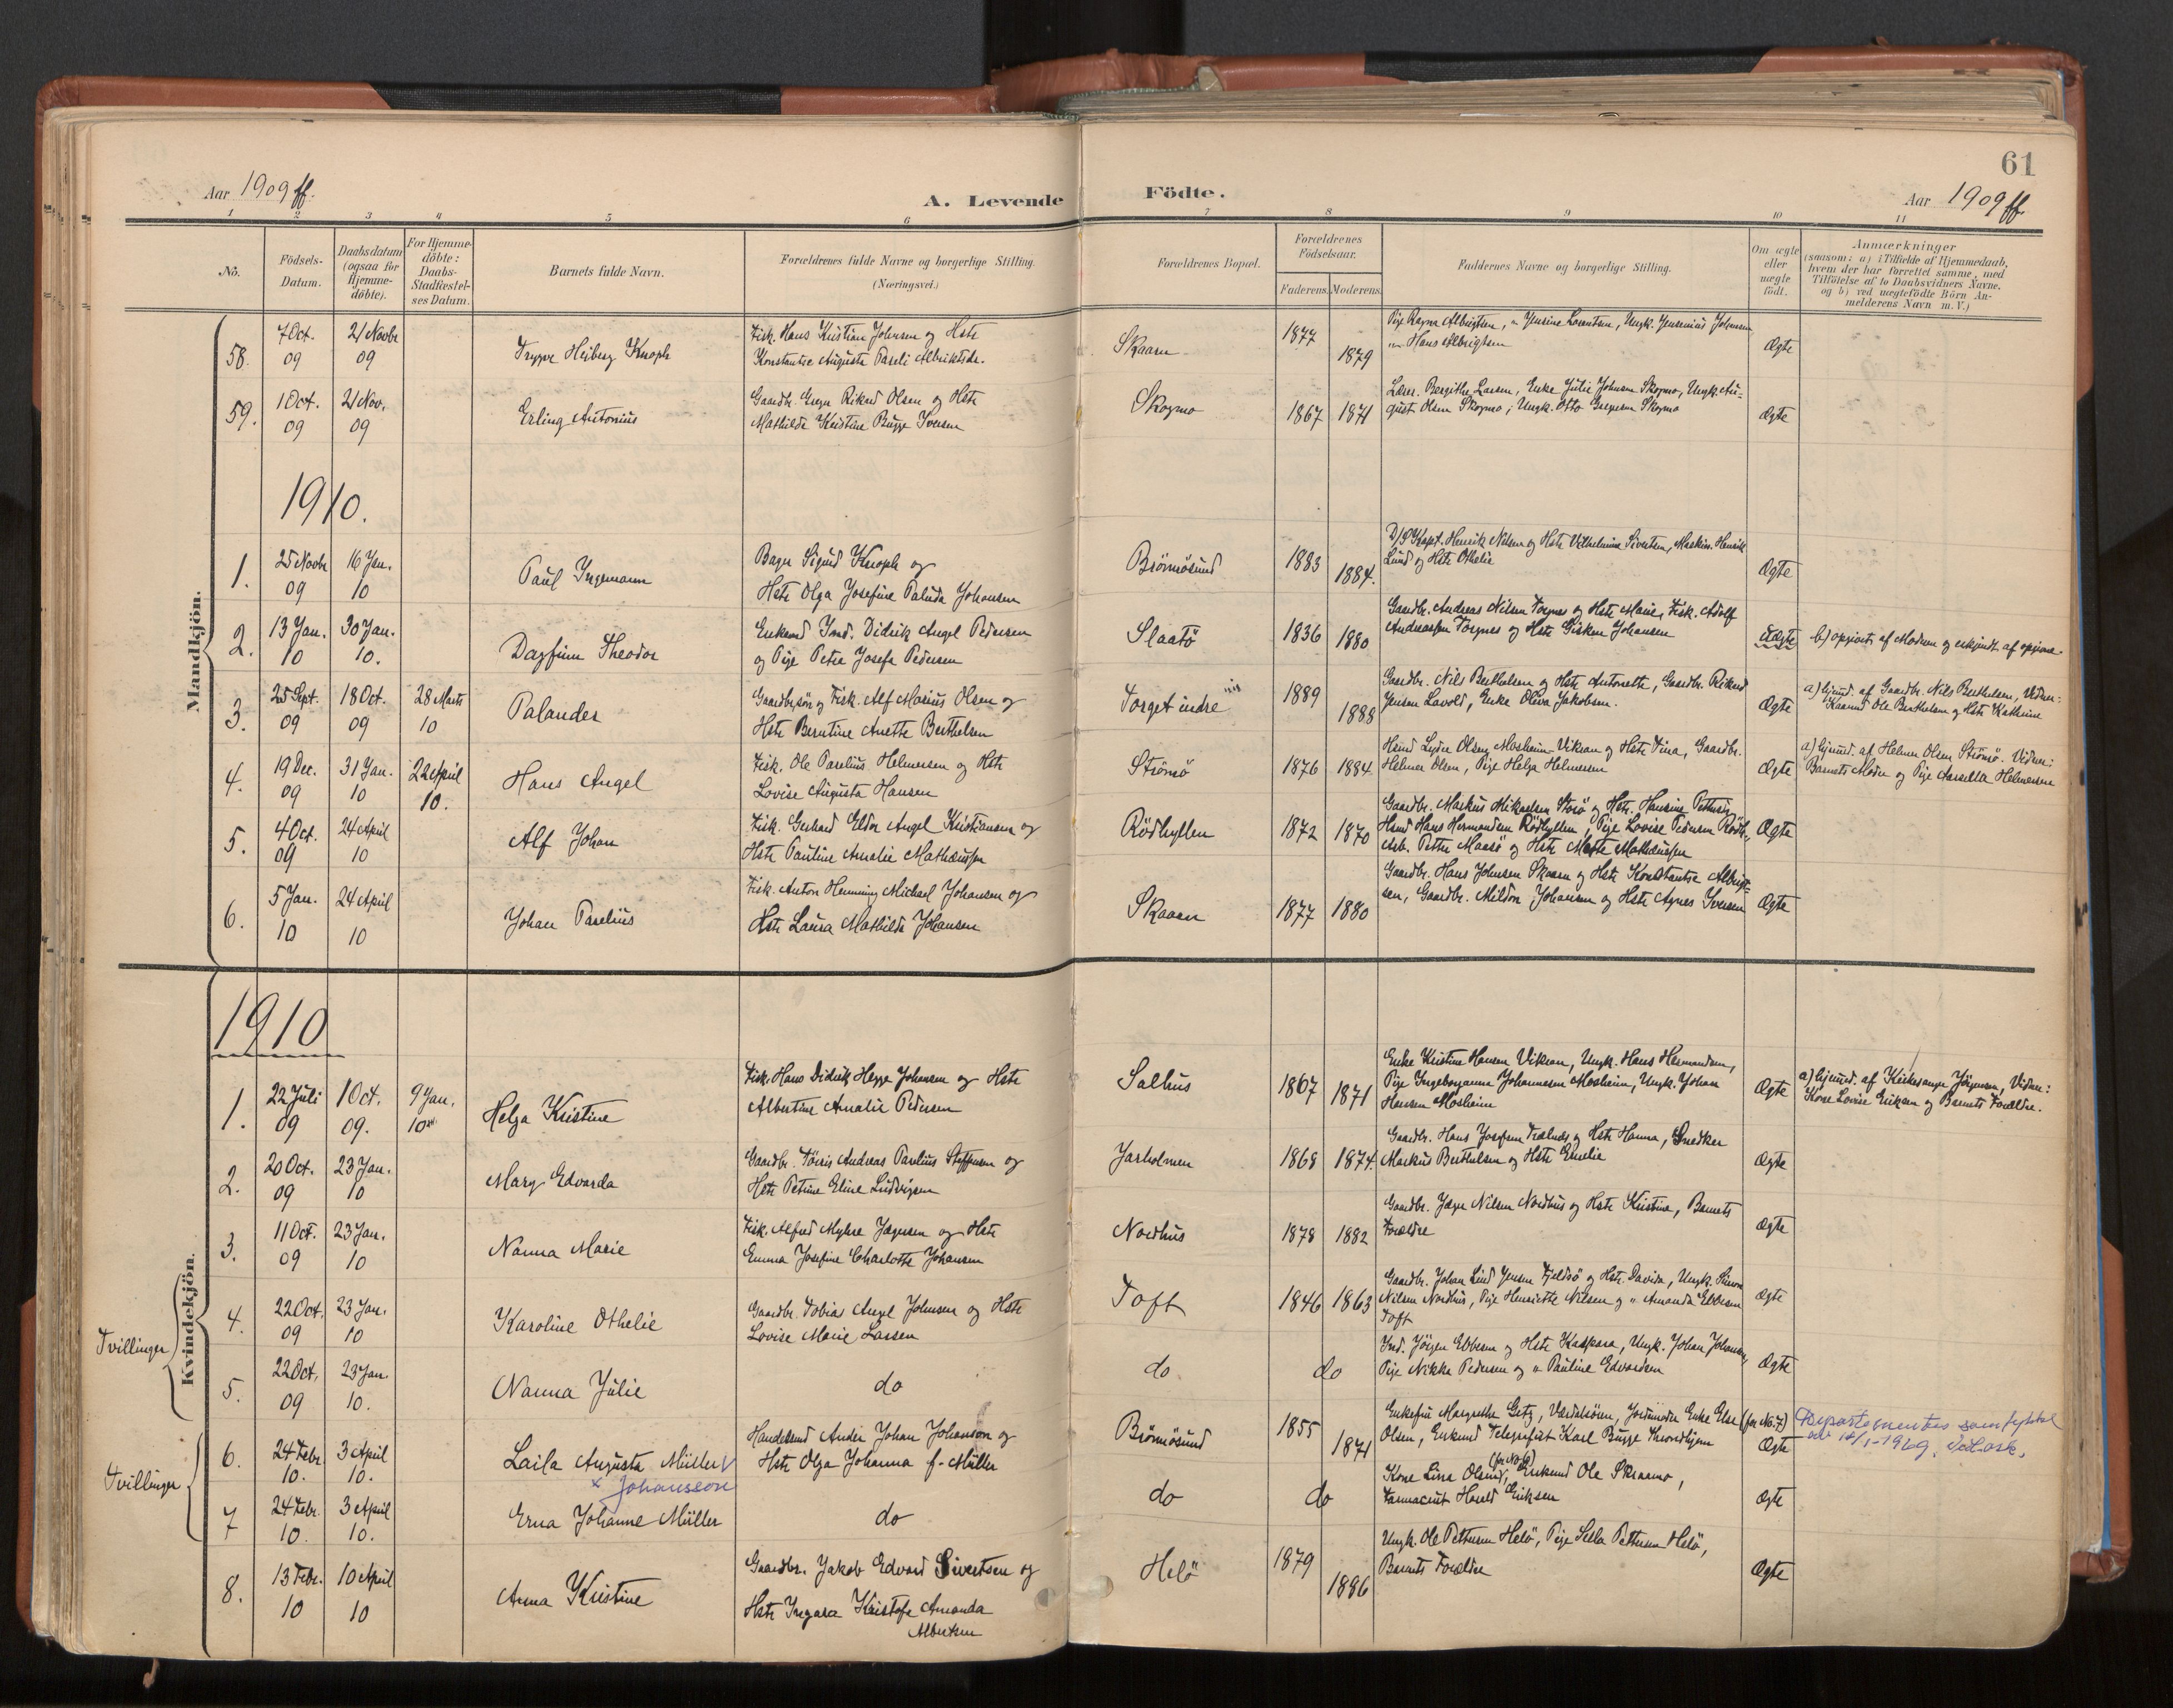 61
Aar 1909 ff.
A. Levende Födte.
Aar 1909 ff.
1 2 3 4 5 6 7 8 9 10 11
No.
Födsels-Datum.
Daabsdatum (ogsaa for Hjemme-döbte).
For Hjemme-döbte: Daabs-Stadfæstel-ses Datum.
Barnets fulde Navn.
Forældrenes fulde Navne og borgerlige Stilling. (Næringsvei.)
Forældrenes Bopæl.
Forældrenes Födselsaar.
Faderens. Moderens.
Faddernes Navne og borgerlige Stilling.
Om ægte eller uægte födt.
Anmærkninger
(saasom: a) i Tilfælde af Hjemmedaab,
hvem der har forrettet samme, med
Tilföielse af to Daabsvidners Navne.
og b) ved uægtefödte Börn An-
melderens Navn m. V.)
Mandkjön.
58. 7 Oct. 09 21 Novbr 09
Trygve Heiberg Knoph
Fisk. Hans Kristian Johnsen og Hstr
Konstantse Augusta Pareli Albriktsdr.
Skaaren 1877 1879
Pige Ragna Albrigtsen, " Jensine Lorentsen, Ungk. Jensenius Johansen
" Hans Albrigtsen
Ægte
59. 1 Oct. 09 21 Nov. 09
Erling Antonius
Gaardbr. Greger Rikard Olsen og Hstr
Mathilde Kristine Bugge Iversen
Skogmo 1867 1871
Lærer. Bergithe Larsen, Enke Julie Johnsen Skogmo, Ungk. Au-
gust Olsen Skogmo, Ungk. Otto Gregersen Skogmo
Ægte
1910.
1. 25 Novbr 09 16 Jan. 10
Paul Ingemann
Bager Sigurd Knoph og
Hstr Olga Josefine Paluda Johansen
Brönnösund 1883 1884.
D/S Kapt. Henrik Nilsen og Hstr Vilhelmine Sivertsen, Maskin. Henrik
Lund og Hstr Othelie
Ægte
2. 13 Jan. 10 30 Jan. 10.
Dagfinn Theodor
Enkemd Ind. Didrik Angel Pedersen
og Pige Petra Josefa Pedersen
Slaatö 1836 1880
Gaardbr. Andreas Nilsen Torgnes og Hstr Marie, Fisk. Adolf
Andreassen Torgnes og Hstr Gisken Johansen
Uægte
b) opgivet af Moderen og erkjendt af opgivne.
3. 25 Sept. 09 18 Oct. 09 28 Marts 10
Palander
Gaardbrsön og Fisk. Alf Marius Olsen og
Hstr Berntine Anette Berthelsen
Torget indre 1889 1888
Gaardbr. Nils Berthelsen og Hstr Antonette, Gaardbr. Rikard
Jensen Lavold, Enke Oliva Jakobsen.
Ægte
a) hjemd. af Gaardbr. Nils Berthelsen, Vidner:
Kaarmd Ole Berthelsen og Hstr Kathrine
4. 19 Dec. 09 31 Jan. 10 22 April 10.
Hans Angel
Fisk. Ole Parelius Helmersen og Hstr
Lovise Augusta Hansen
Strömö 1876 1884.
Hsmd Lyder Olsen Mosheim-Vikran og Hstr Tina, Gaardbr.
Helmer Olsen, Pige Helga Helmersen
Ægte
a) hjemd. af Helmer Olsen Strömö. Vidner:
Barnets Moder og Pige Helmersen
5. 4 Oct. 09 24 April 10
Alf Johan
Fisk. Gerhard Eldor Angel Kristiansen og
Hstr Pauline Amalie Mathæussen
Rödhyllen 1872 1870
Gaardbr. Markus Mikaelsen Storö og Hstr. Hansine Pettersen,
Hsmd Hans Hermansen Rödhyllen, Pige Lovise Pedersen Rödh.,
Arb. Petter Maasö og Hstr Mathæussen
Ægte
6. 5 Jan. 10 24 April 10
Johan Parelius
Fisk. Anton Henning Michael Johansen og
Hstr Laura Mathilde Johansen
Skaaren 1877 1880
Gaardbr. Hans Johnsen Skaaren og Hstr Konstantse Albrigt-
sen, Gaardbr. Mildor Johansen og Hstr Agnes Iversen
Ægte
1910
Kvindekjön.
1. 22 Juli 09 1 Oct. 09. 9 Jan. 10
Helga Kristine
Fisk. Hans Didrik Hegge Johansen og Hstr
Albertine Amalie Pedersen
Salhus 1867 1871
Enke Kristine Hansen Vikran, Ungk. Hans Hermansen,
Pige Ingeborganna Johannesen Mosheim, Ungk. Johan
Hansen Mosheim
Ægte
a) hjemd. af Kirkesanger Jörgensen, Vidner:
Kone Lovise Eriksen og Barnets Forældre.
2. 20 Oct. 09 23 Jan. 10
Mary Edvarda
Gaardbr. Töiris Andreas Parelius Steffensen og
Hstr Petrine Eline Ludvigsen
Jarholmen 1868 1874.
Gaardbr. Hans Josefsen Trælnes og Hstr Hanna, Snedker
Markus Berthelsen og Hstr Emelie
Ægte
3. 11 Oct. 09 23 Jan. 10
Nanna Marie
Fisk. Alfred Myhre Jægersen og Hstr
Emma Josefine Charlotte Johansen
Nordhus 1878 1882
Gaardbr. Jæger Nilsen Nordhus og Hstr Kristina, Barnets
Forældre
Ægte
Tvillinger
4. 22 Oct. 09 23 Jan. 10
Karoline Othelie
Gaardbr. Tobias Angel Johnsen og Hstr
Lovise Marie Larsen
Toft 1846 1863
Gaardbr. Johan Lind Jensen Fjeldsö og Hstr Davida, Ungk. Simon
Nilsen Nordhus, Pige Henriette Nilsen og " Amanda Ebbesen
Toft
Ægte
5. 22 Oct. 09 23 Jan. 10.
Nanna Julie
do
do do
Ind. Jörgen Ebbesen og Hstr Kaspara, Ungk. Johan Johansen,
Pige Nikka Pedersen og " Pauline Edvardsen
Ægte
Tvillinger
6. 24 Febr. 10. 3 April 10.
Laila Augusta Müller
x Johansson
Handelsmd Ander Johan Johanson og
Hstr Olga Johanna f. Müller
Brönnösund 1855 1871
Enkefru Margrethe Getz, Værdalsören, Jordmoder Enke Else (for No. 7)
Olsen, Enkemd Telegrafist Karl Bugge Throndhjem
Ægte
Departementes samtykke
av 14/1-1969.
7 24 Febr. 10. 3 April 10.
Erna Johanne Müller
do
do do
Kone Lina Olsen (for No 6), Enkemd Ole Skraamo,
Farmaceut Harald Eriksen
Ægte
8. 13 Febr. 10 10 April 10
Anna Kristine
Gaardbr. Jakob Edvard Sivertsen og
Hstr Ingara Kristofa Amanda
Albertsen
Helö 1879 1886
Ungk. Ole Pettersen Helö, Pige Sella Pettersen Helö,
Barnets Forældre
Ægte